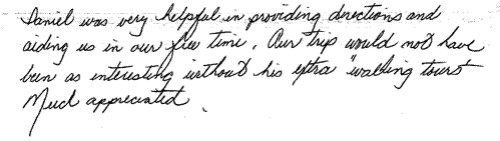 Daniel was very helpful in providing directions and
aiding us in our free time. Our trip would not have
been as interesting without his extra "walking tours"
Much appreciated.